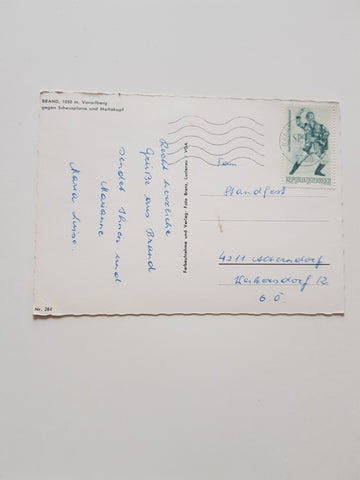 BRAND, 1050 m, Vorarlberg
gegen Schesaplana und Mottakopf
Recht herzliche
Grüße aus Brand
sendet Ihnen und
Marianne
Maria Luise.
Nr. 284
Farbaufnahme und Verlag: Foto Branz, Lustenau / VBA
REPUBLIK ÖSTERREICH
Fam
Standfest
4211 Alberndorf
12
O.Ö.